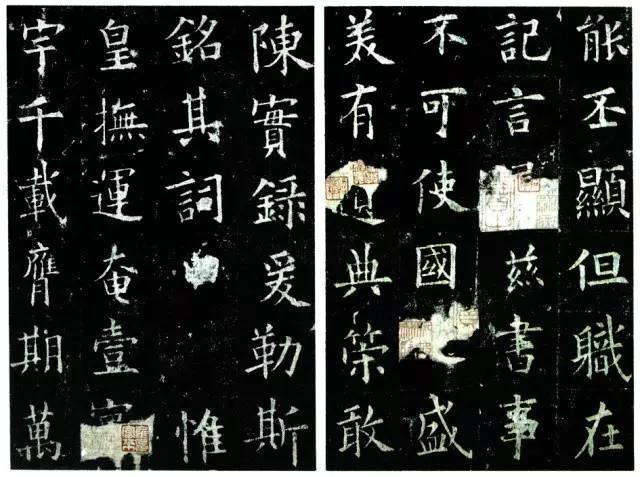 能丕顯但職在
記言兹書事
不可使國盛
美有典策敢
陳實録爰勒斯
銘其詞惟
皇撫運奄壹
宇千載膺期萬